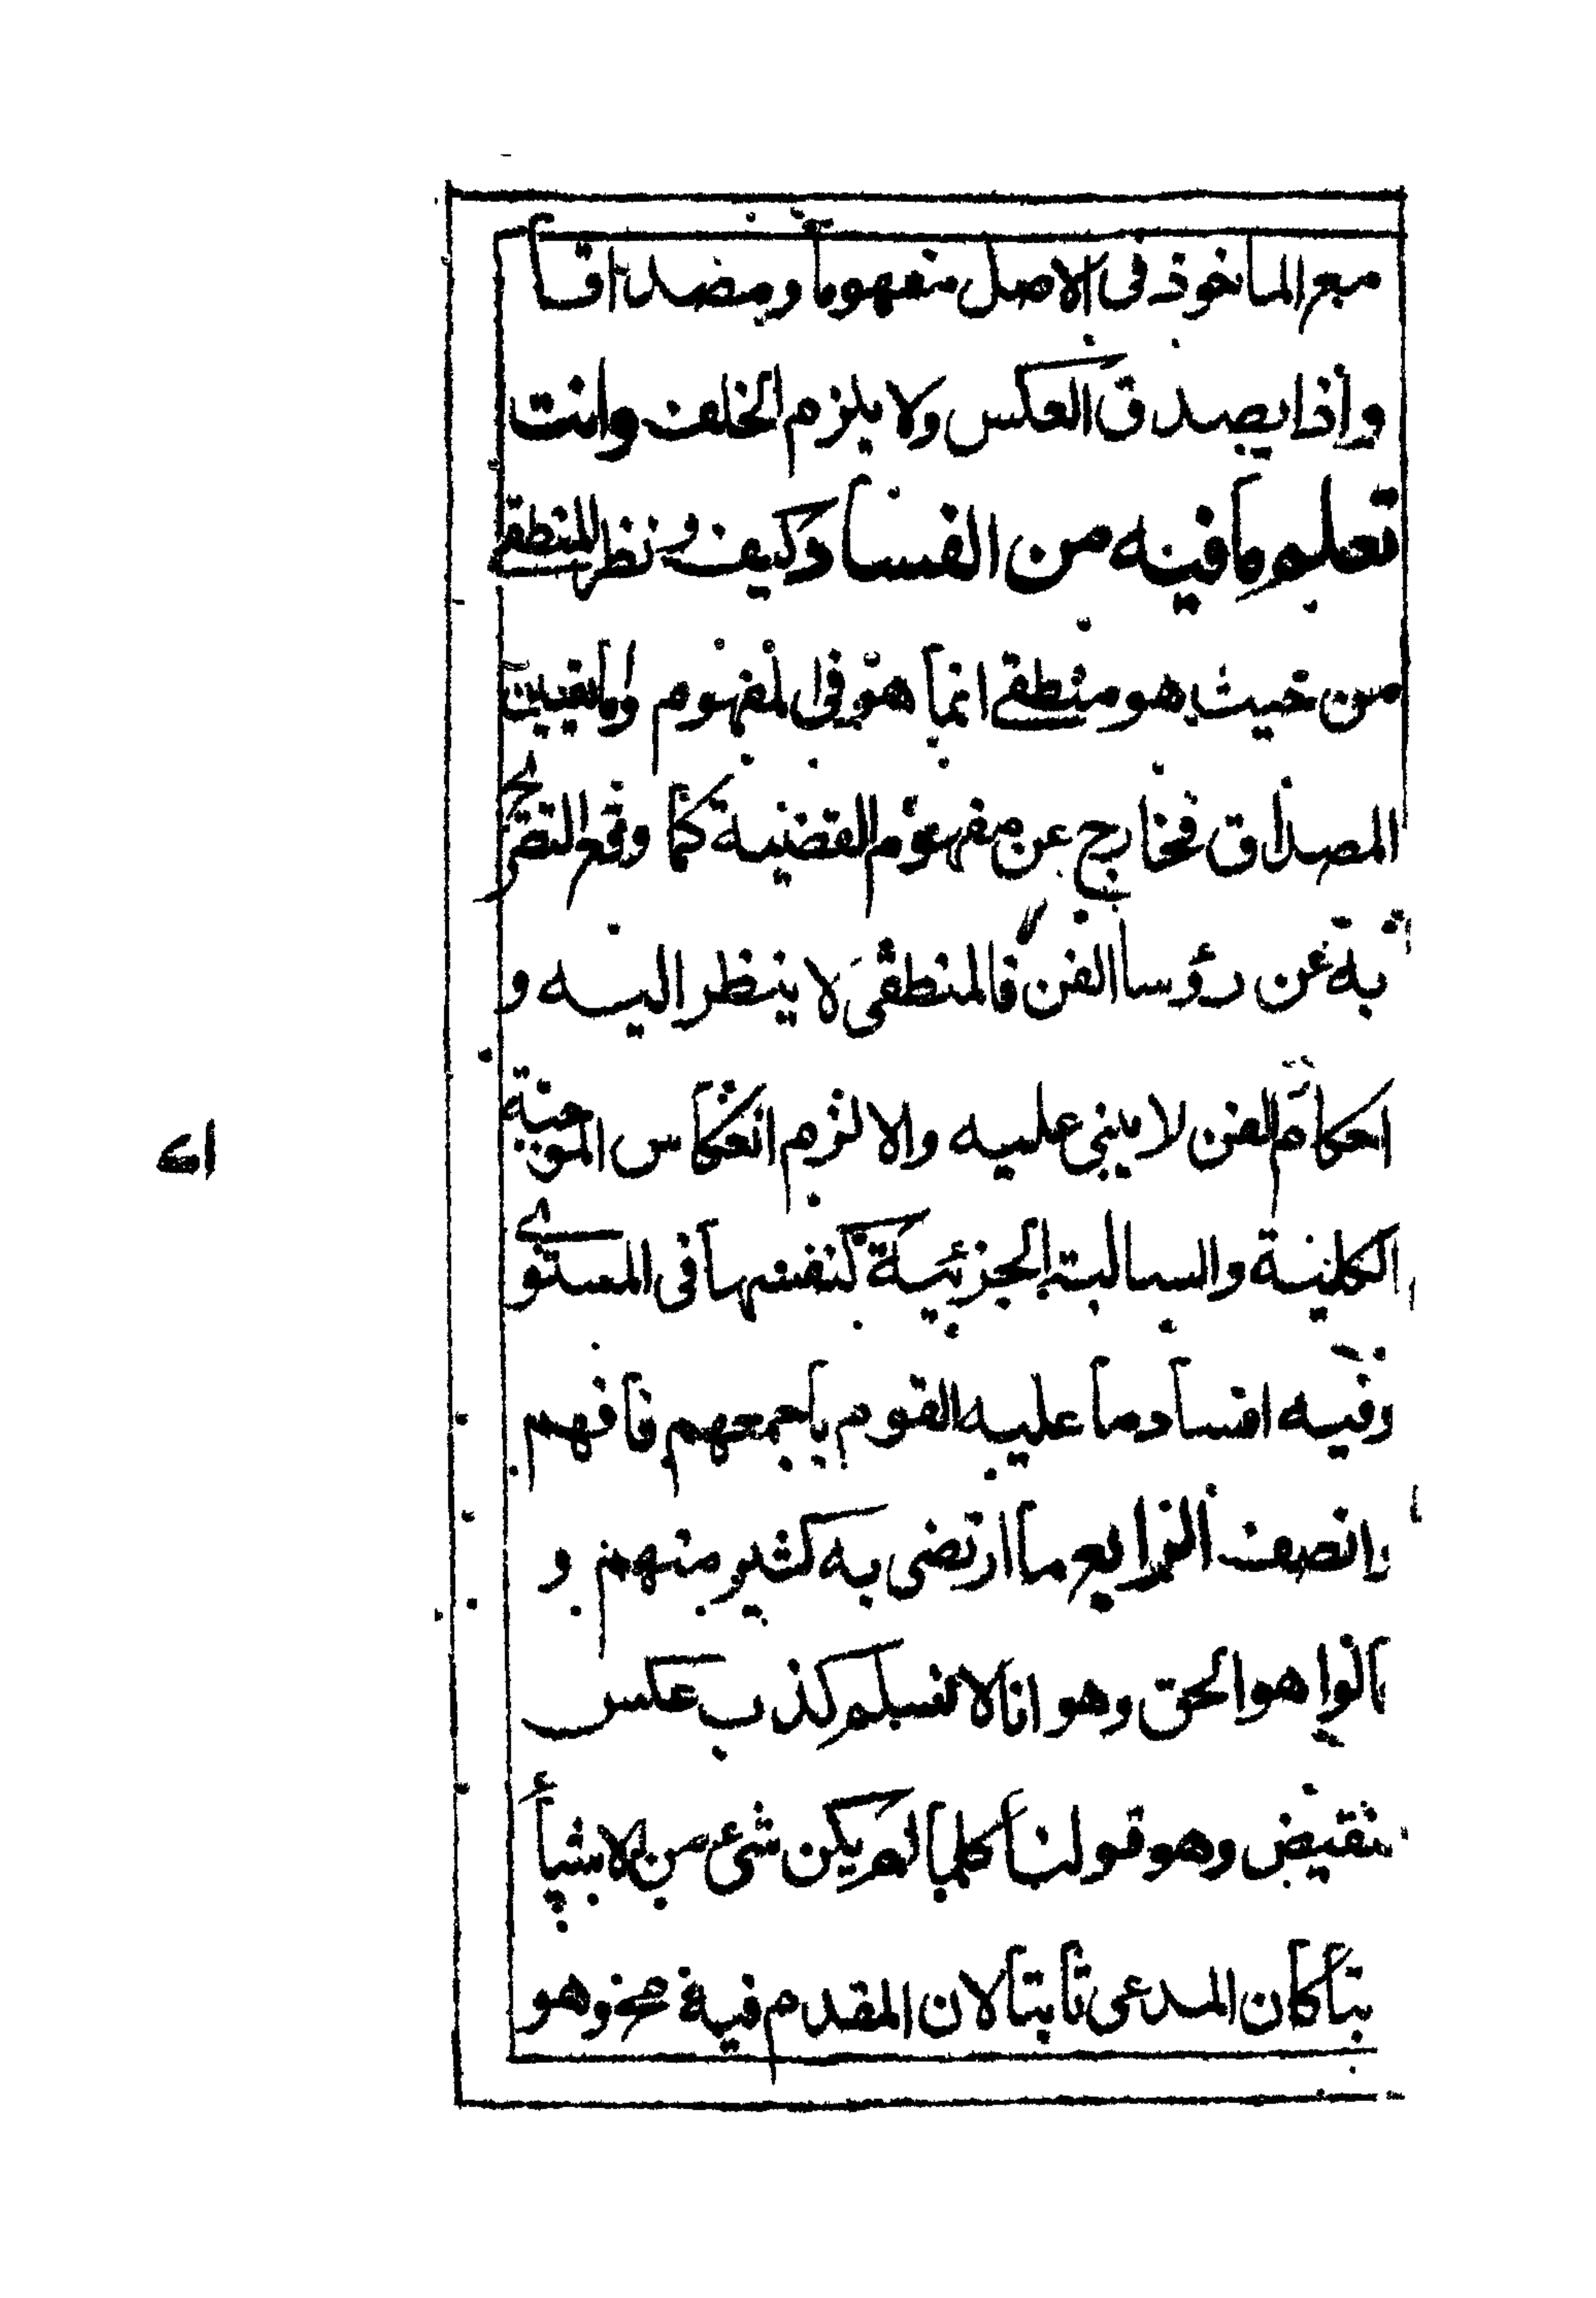 مع الماخوذ فى الاصل مفهوما ومصداقا
واذا يصدق العكس ولا يلزم الخلف وانت
تعلم ما فيه من الفساد وكيف ونظر المنطقے
من حيث هو منطقے انما هو فى المفهوم واما تعيين
المصداق فخارج عن مفهوم القضية كما وقع التصريح
به عن رؤسا الفن فالمنطقى لا ينظر اليه و
احكام الفن لا يبنى عليه والا لزم انعكاس الموجبة
الكلية والسالبة الجزئية كنفسها فى المستوے
وفيه افساد ما عليه القوم باجمعهم فافهم
الرابع ما ارتضى به كثير منهم و
قالوا هو الحق وهو انا لا نسلم كذب عكس
نقيض وهو قولنا كلما لم يكن شئ من الاشياء
بتا كان المدعى ثابتا لان المقدم فيه مح وهو